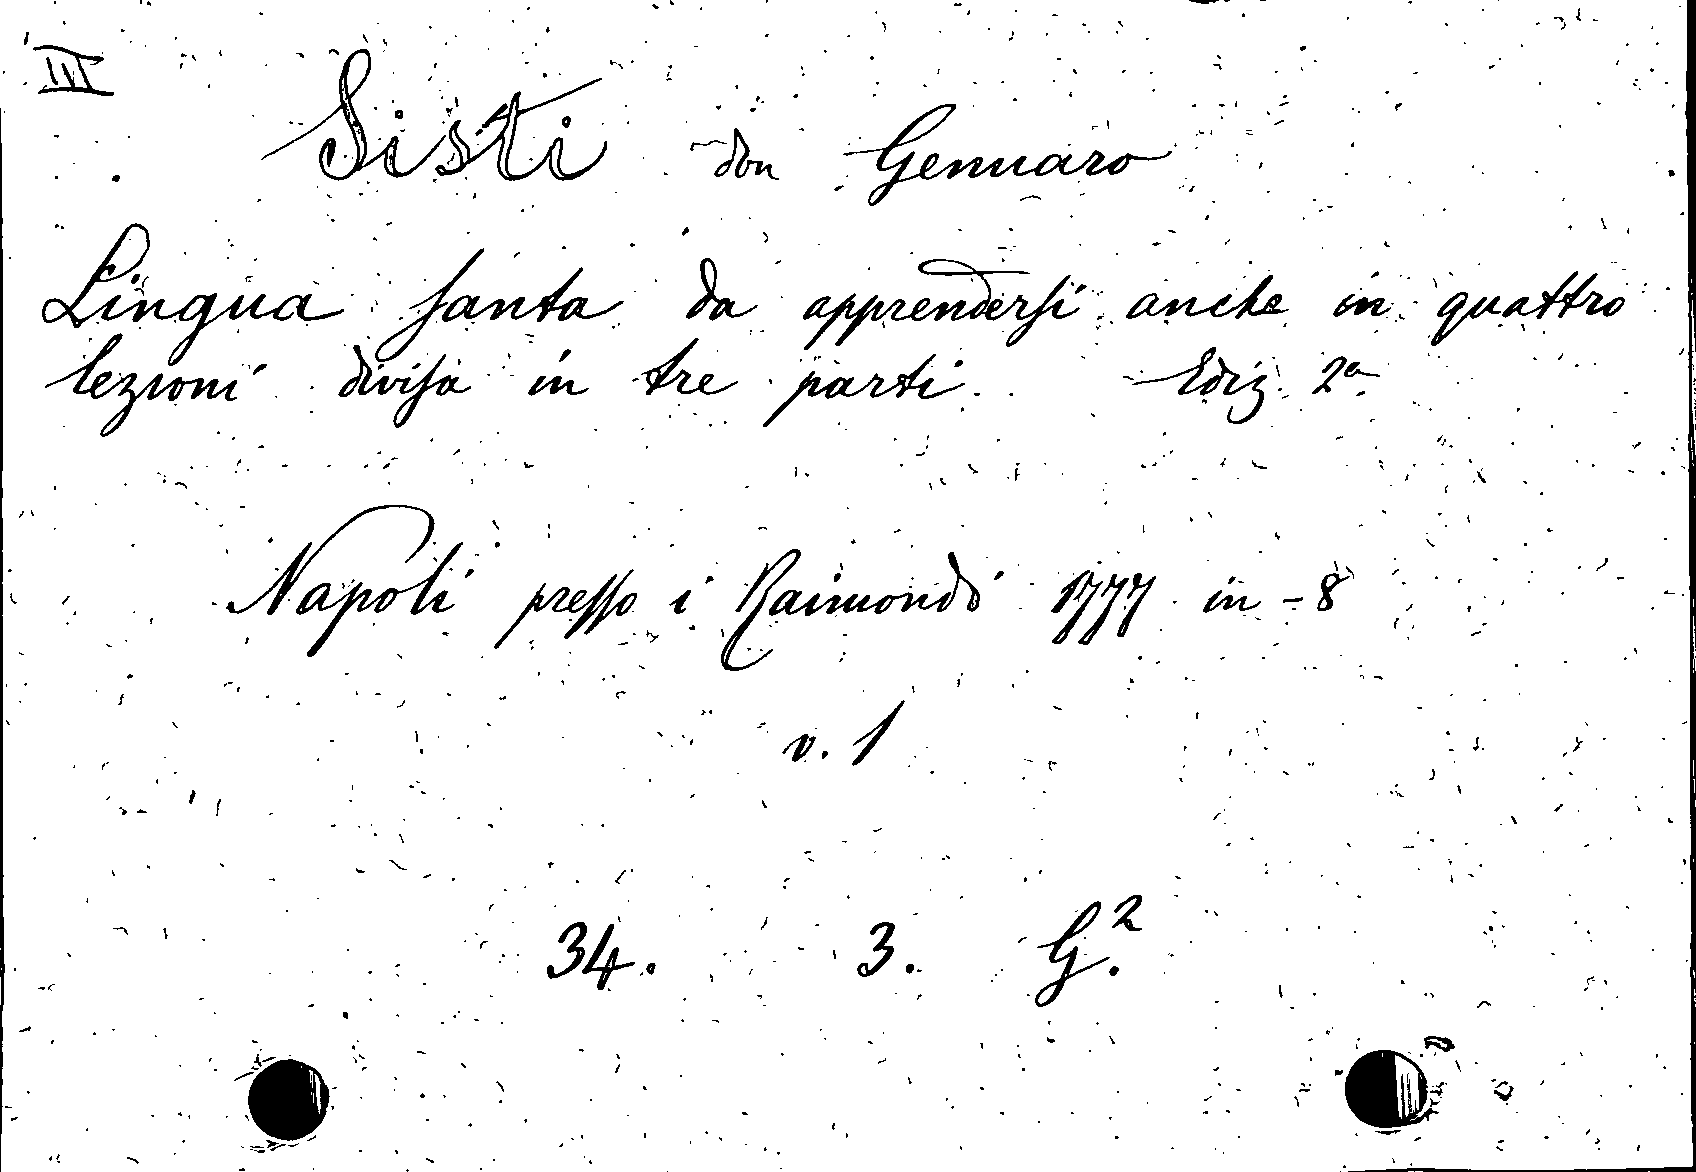 III
Sisti don Gennaro
Lingua santa da apprendersi anche in quattro
lezioni divisa in tre parti. Ediz. 2a
Napoli presso i Raimondi 1777 in-8
v. 1
34. 3. G.2